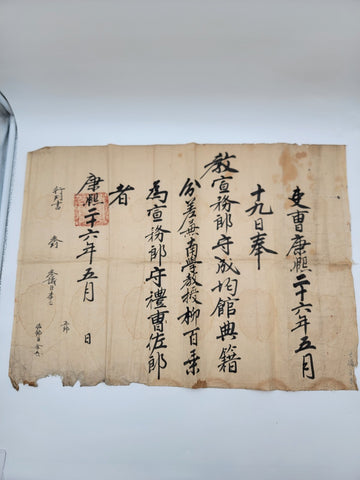 吏曹康熙二十六年五月
十九日奉
教宣務郎守成均館典籍
分差兼南學教授柳百乘
為宣務郎守禮曹佐郎
者
康熙二十六年五月　日
行判書
參議臣李
正郎
佐郎臣金